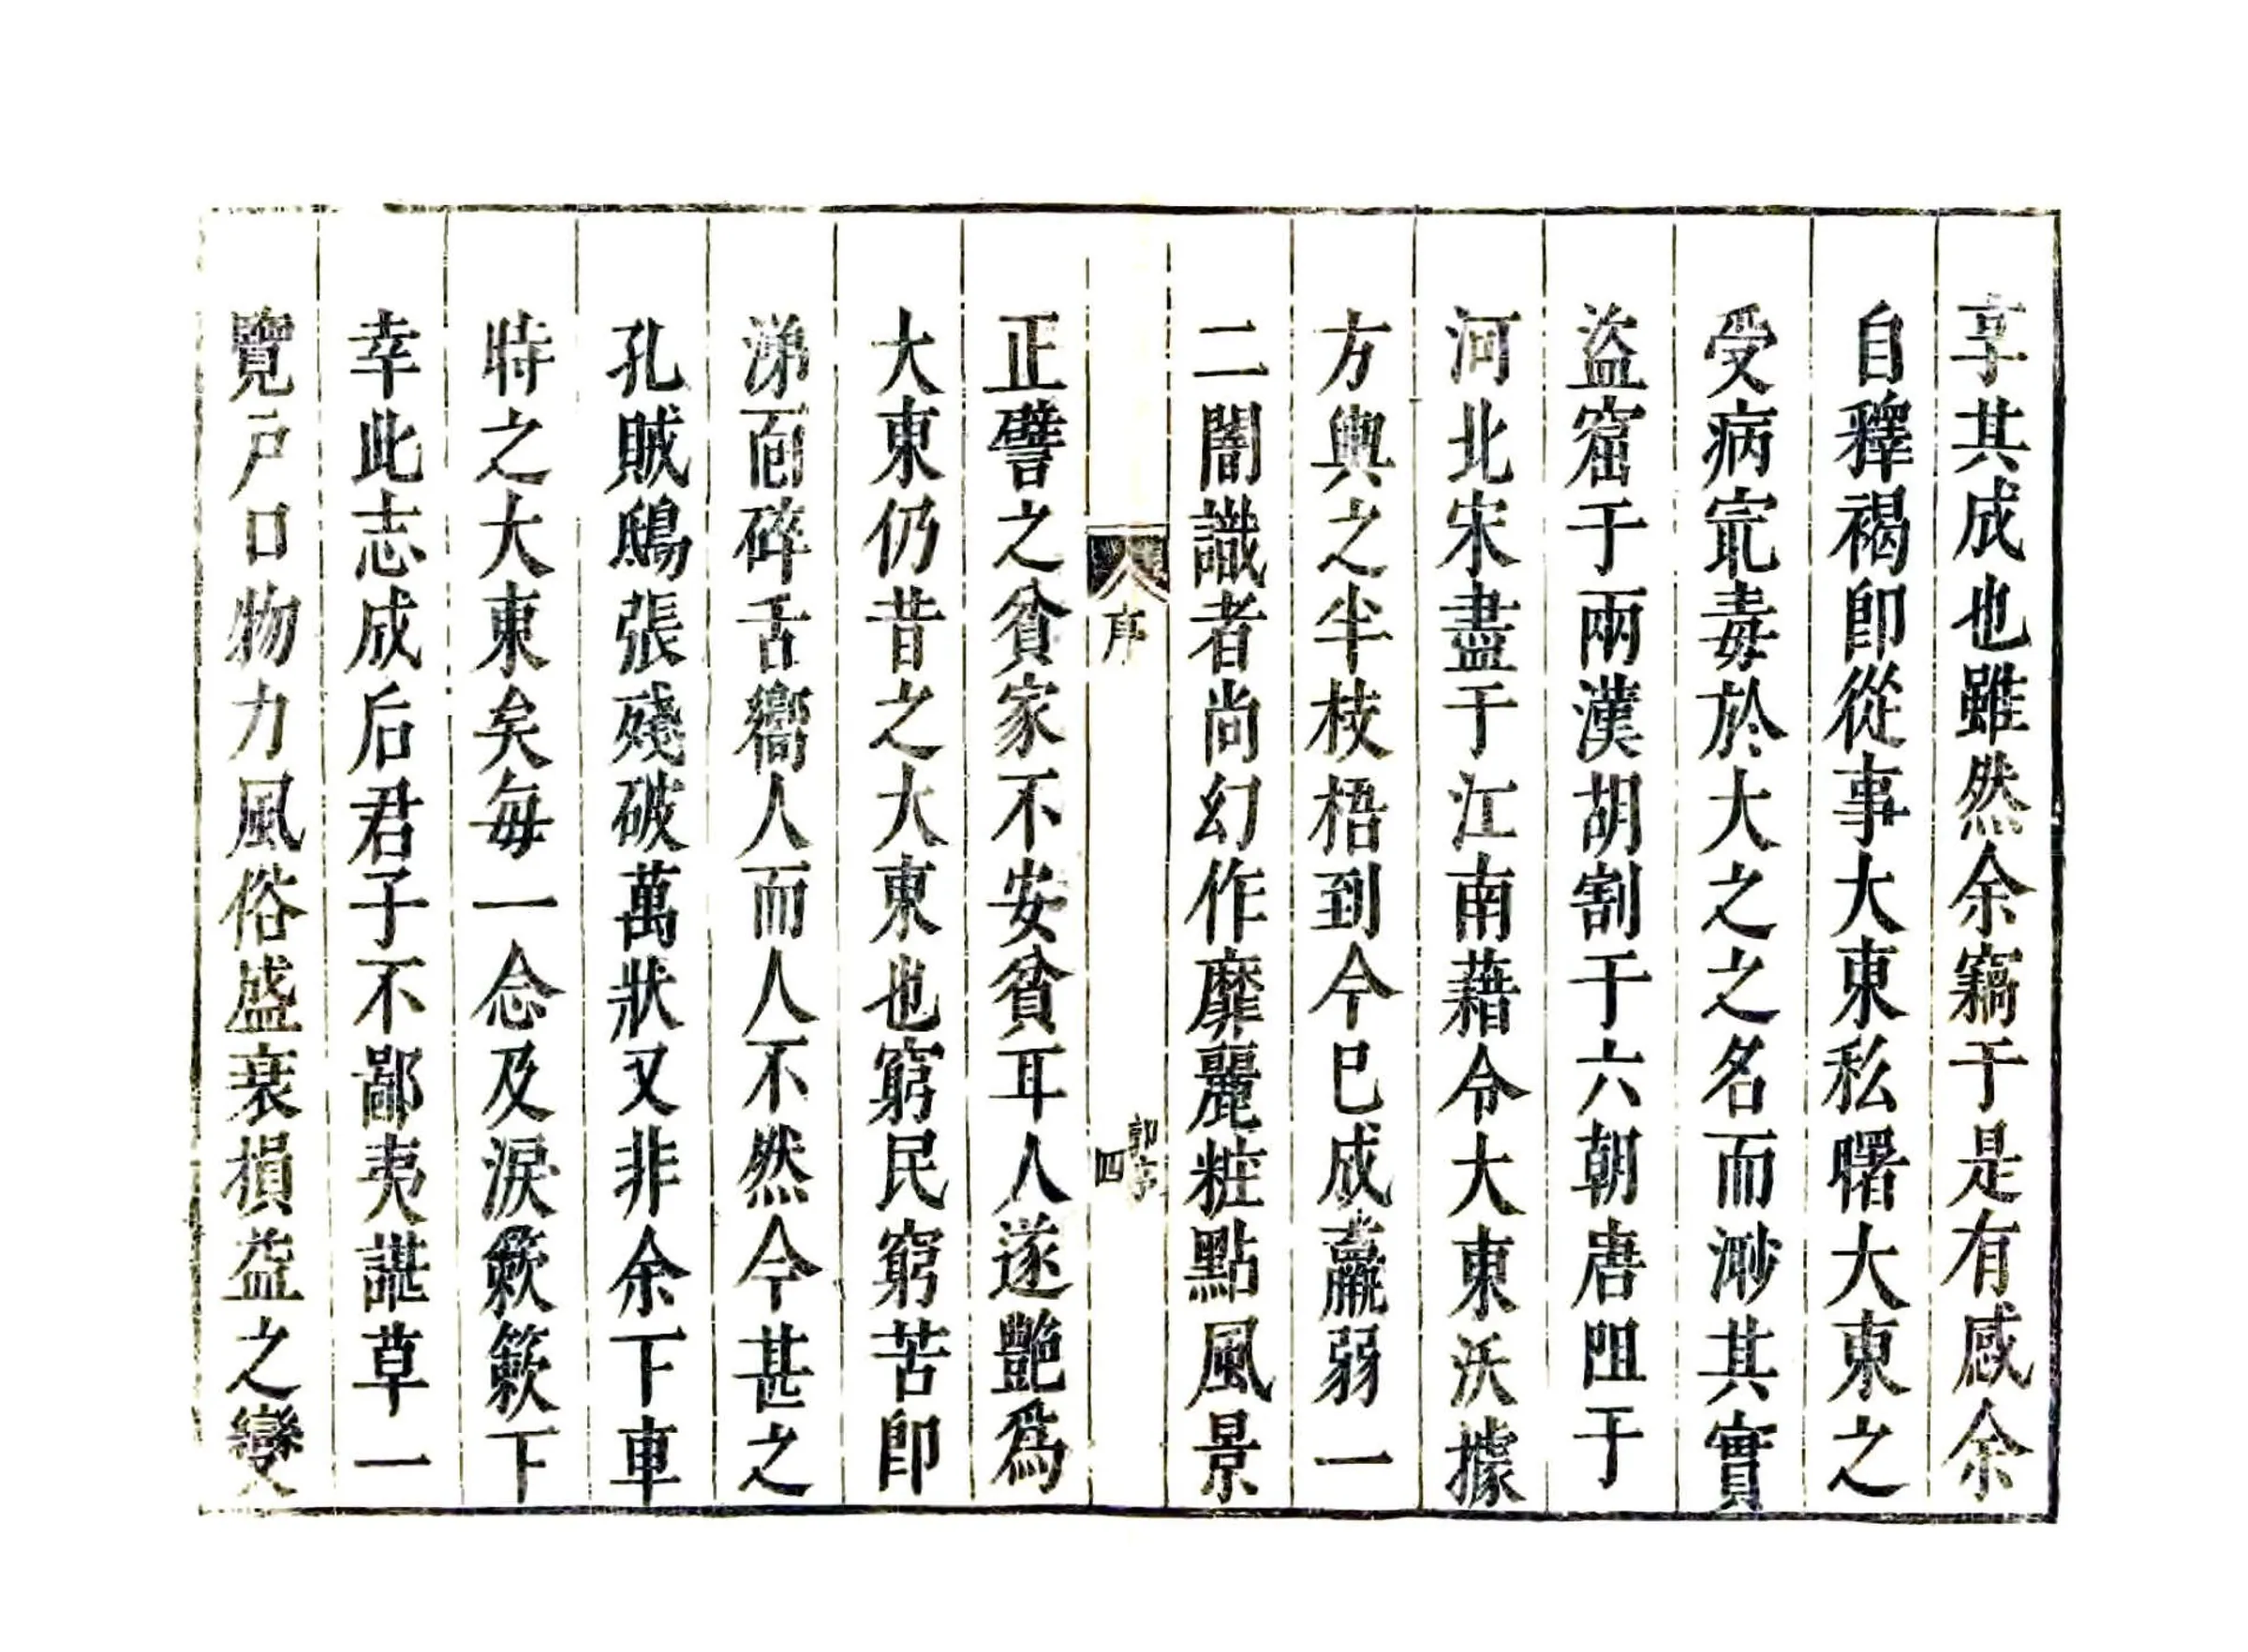 享其成也雖然余竊于是有感余
自釋褐卽從事大東私曙大東之
受病寔毒於大之之名而渺其實
盜窟于兩漢胡割于六朝唐阻于
河北宋盡于江南藉令大東沃據
方輿之半枝梧到今已成羸弱一
二闇識者尚幻作靡麗粧點風景
序
郭序
四
正譬之貧家不安貧耳人遂艷爲
大東仍昔之大東也窮民窮苦卽
涕面碎舌嚮人而人不然今甚之
孔賊鴟張殘破萬狀又非余下車
時之大東矣每一念及淚簌簌下
幸此志成后君子不鄙夷諶草一
覽戶口物力風俗盛衰損益之變